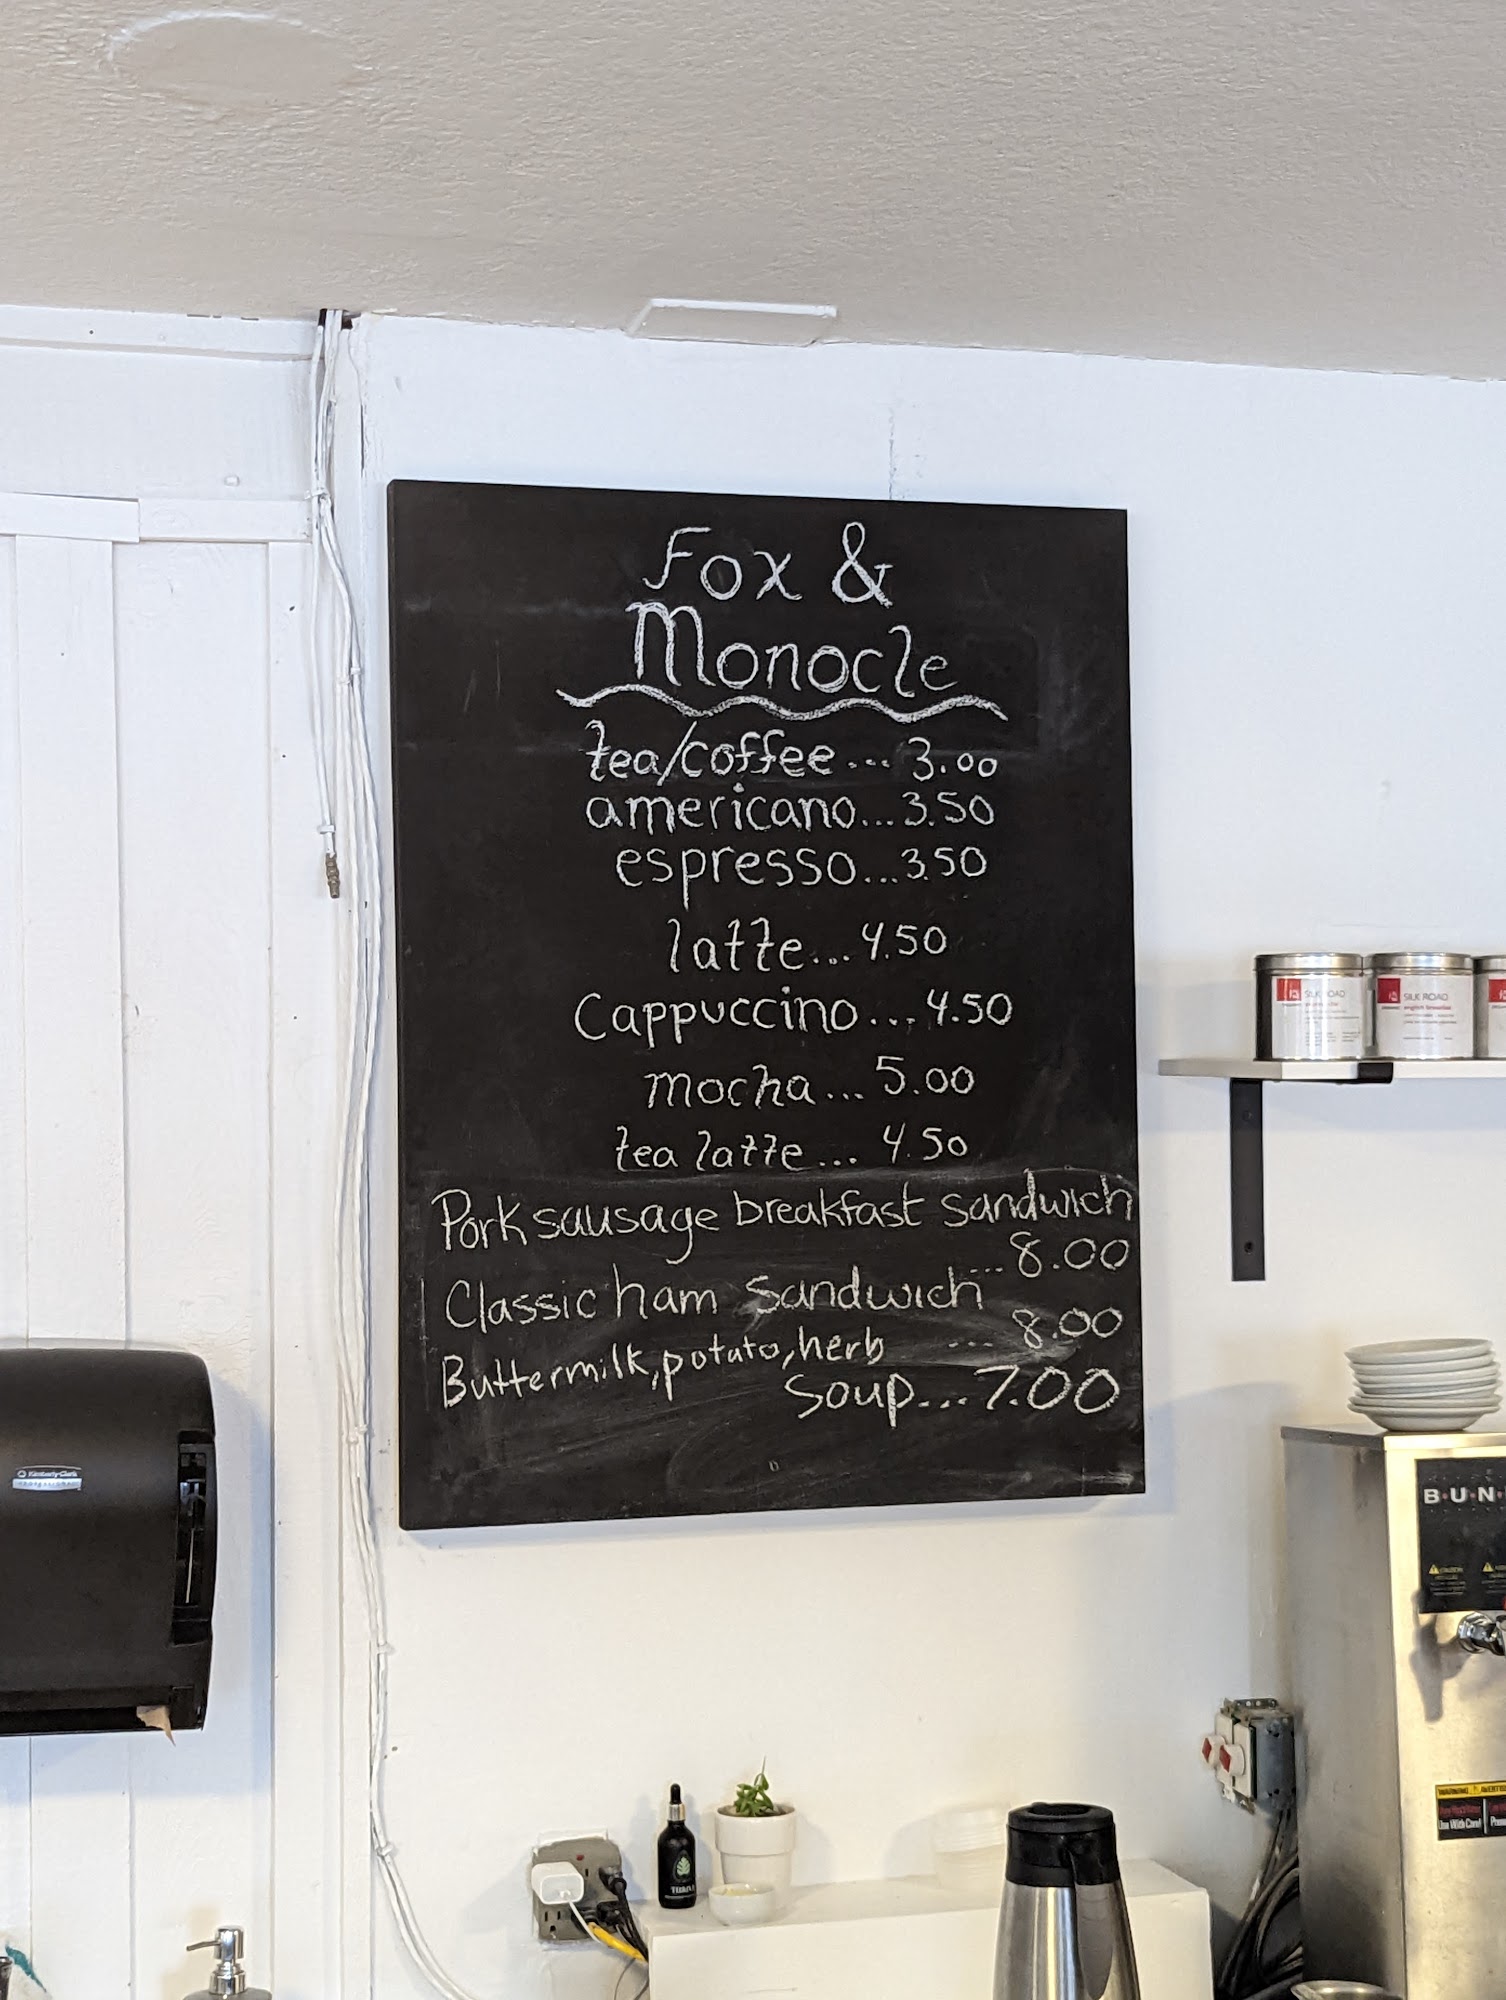 Fox &
Monocle
tea/coffee... 3.00
americano...3.50
espresso...3.50
latte...4.50
Cappuccino...4.50
mocha...5.00
tea latte... 4.50
Pork sausage breakfast sandwich
... 8.00
Classic ham sandwich
... 8.00
Buttermilk, potato, herb
Soup...7.00
SILK ROAD
SILK ROAD
english breakfast
Kimberly-Clark
PROFESSIONAL
B·U·N
Use With Care!